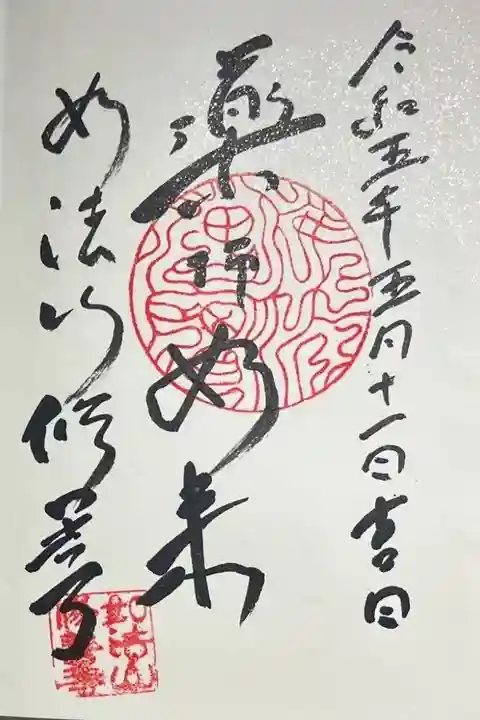 令和五年五月十一日吉日
薬師如来
如法行修善寺